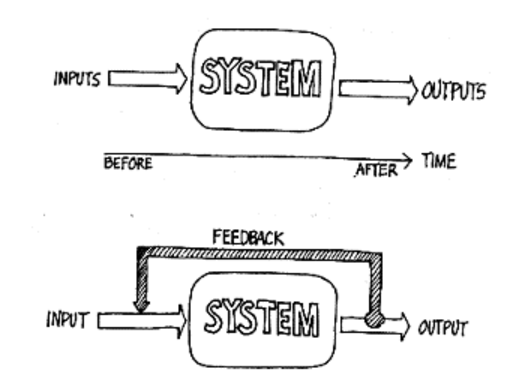 INPUTS
SYSTEM
OUTPUTS
BEFORE
AFTER
TIME
FEEDBACK
INPUT
SYSTEM
OUTPUT